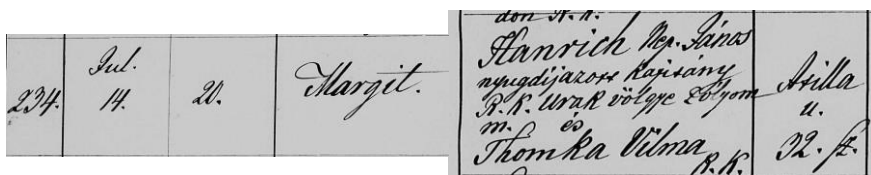 234.
Jul.
14.
20.
Margit.
don R. K.
Hanrich Nep. János
nyugdijazott kapitány
R. K. Urak völgye Zólyom
m. és
Thomka Vilma
R. K.
Atilla
u.
32. sz.